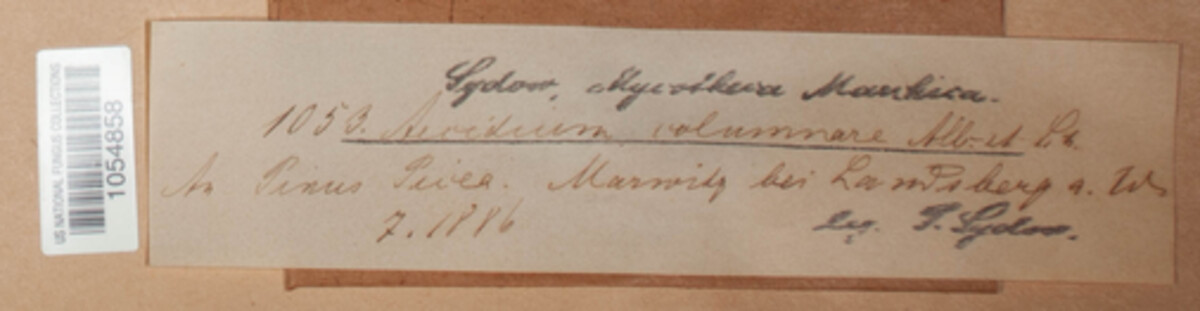 US NATIONAL FUNGUS COLLECTIONS
1054858
Sydow, Mycotheca Marchica.
1053. Aecidium columnare Alb. et Sch.
An Pinus Picea. Marwitz bei Landsberg a. W.
7. 1886
leg. P. Sydow.